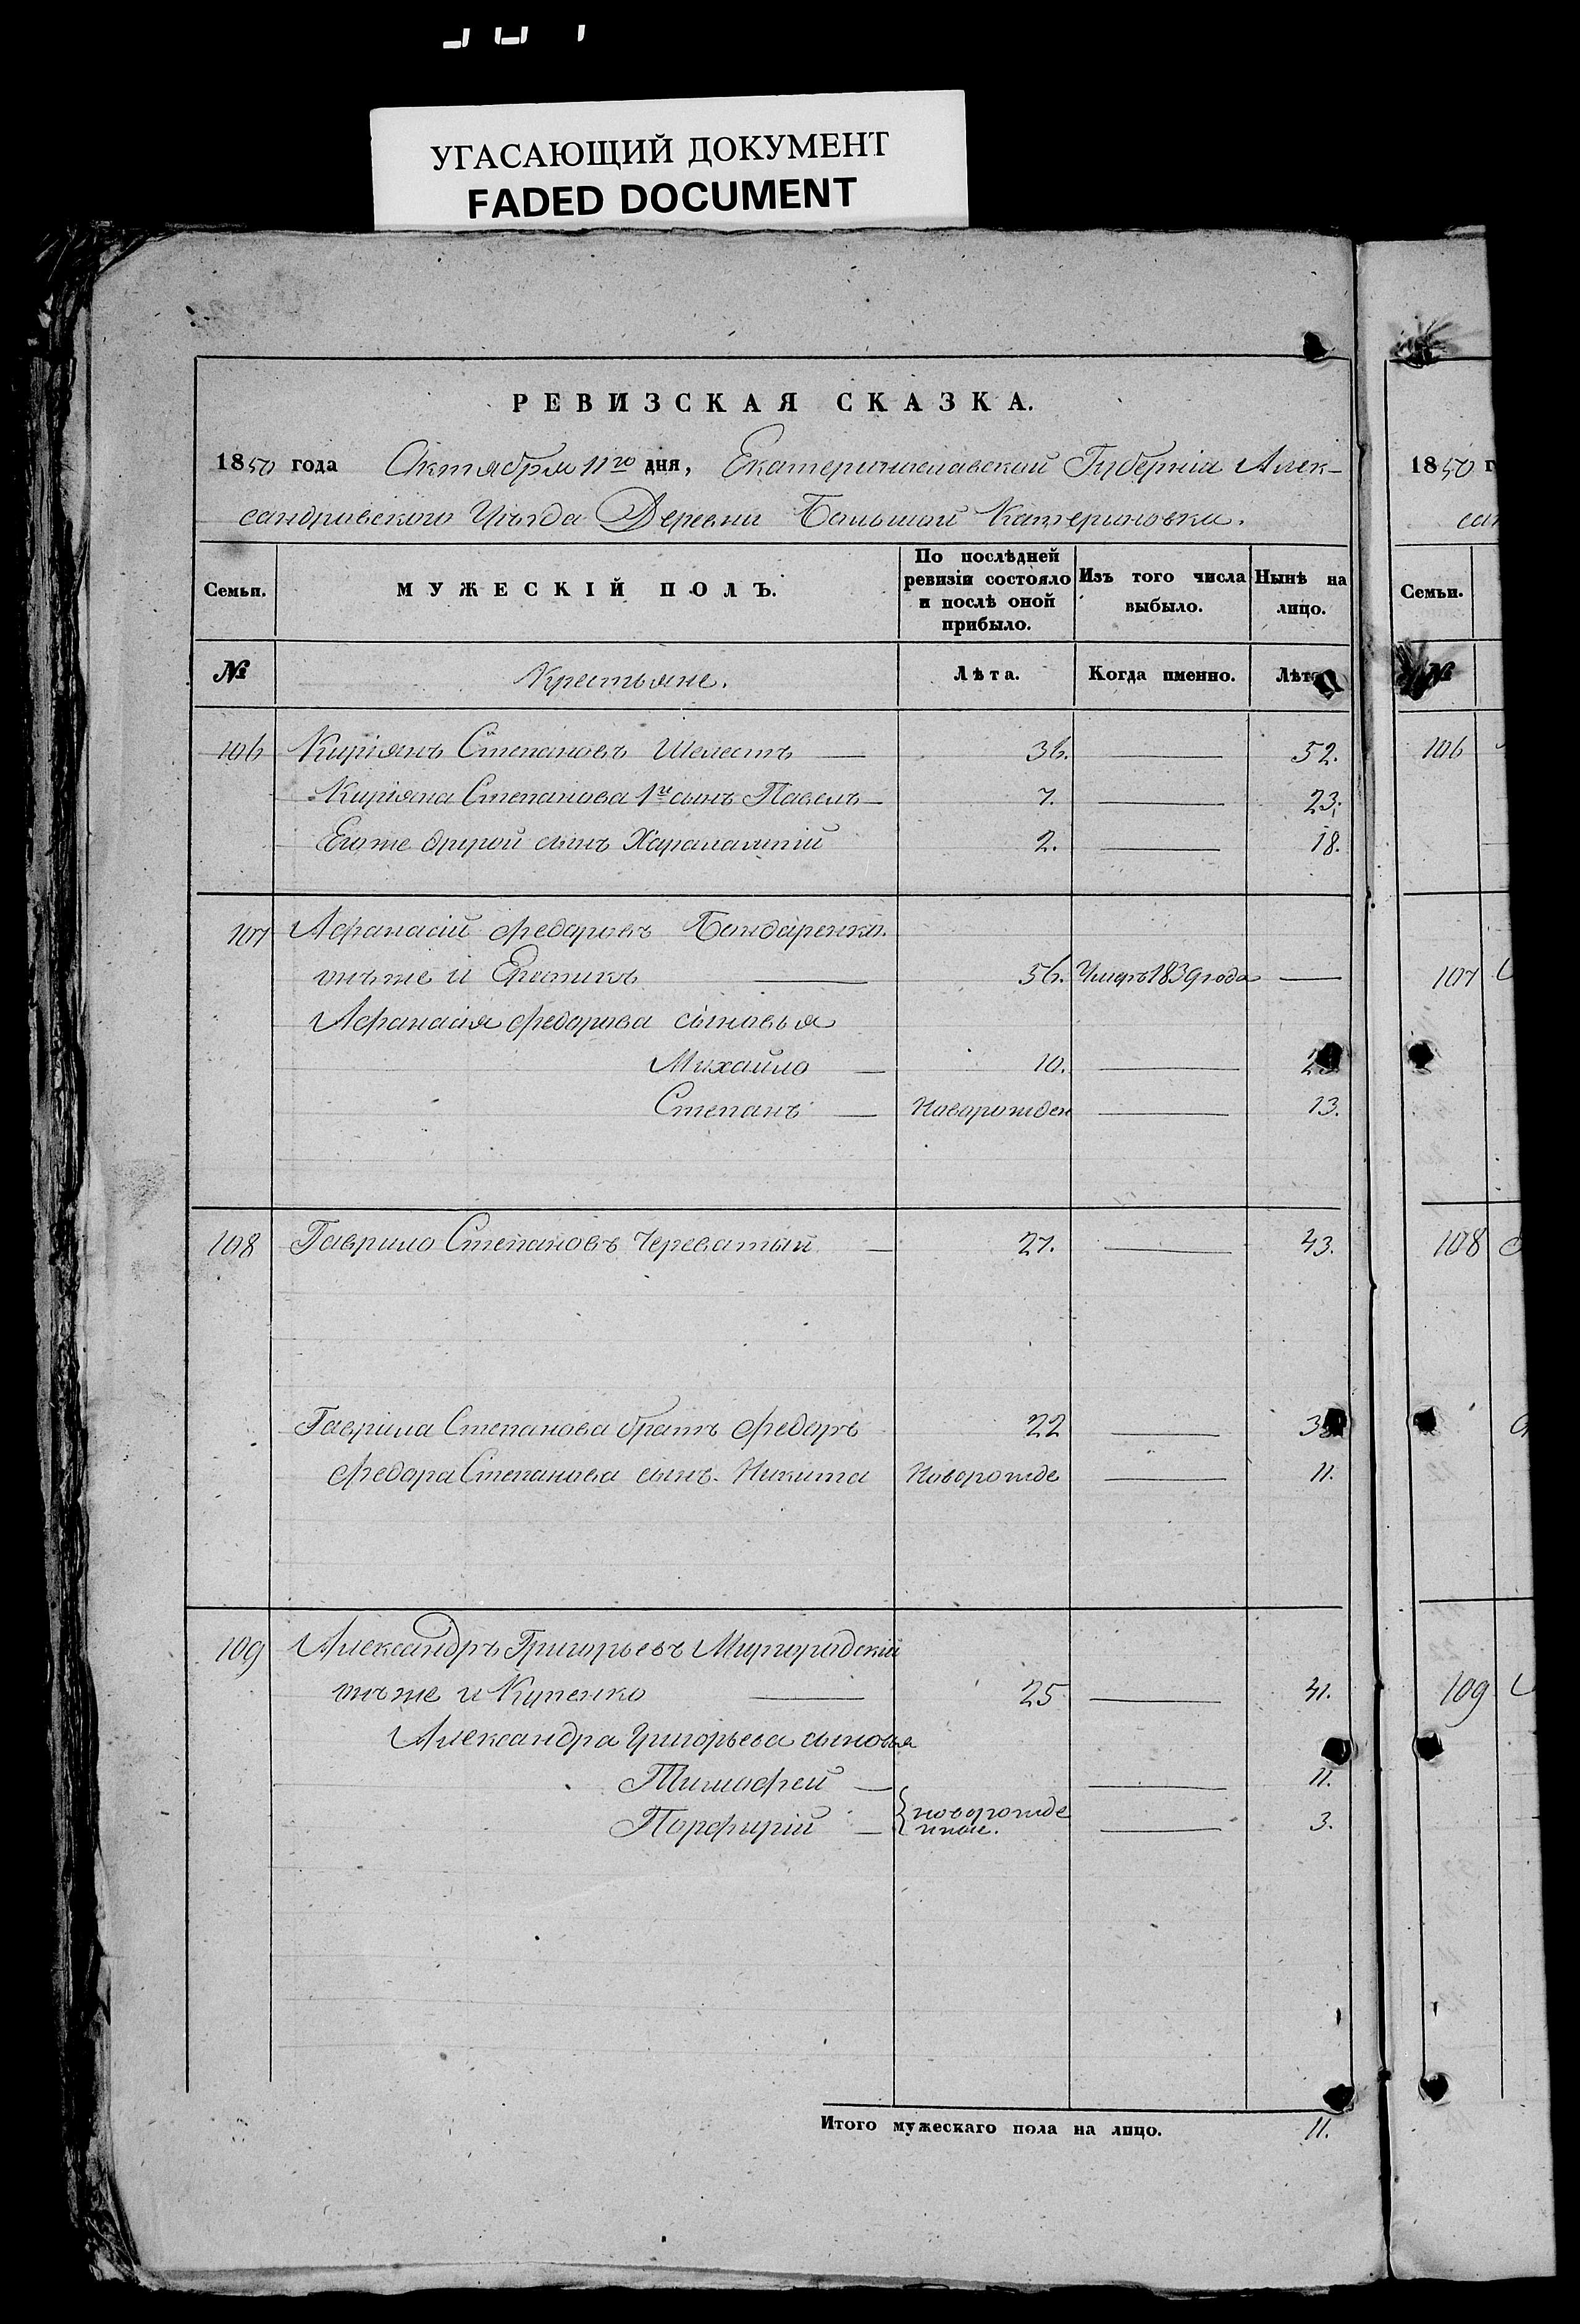 УГАСАЮЩИЙ ДОКУМЕНТ
FADED DOCUMENT
РЕВИЗСКАЯ СКАЗКА.
1850 года Октября 11го дня, Екатеринославской Губерніи Алек-
сандровского Уѣзда Деревни Большой Катериновки.
Семьи. МУЖЕСКІЙ ПОЛЪ. По послѣдней ревизіи состояло и послѣ оной прибыло. Изъ того числа выбыло. Нынѣ на лицо.
№ Крестьяне. Лѣта. Когда именно. Лѣта
106 Киріянъ Степановъ Шелестъ — 36. — 52.
Киріяна Степанова 1й сынъ Павелъ — 7. — 23.
Егоже другой сынъ Харалампій 2. — 18.
107 Афанасій Федоровъ Бондаренко.
тъже и — 56. Умеръ 1839 года —
Афанасія Федорова сыновья
Михайло — 10. —
Степанъ — Новорожден — 13.
108 Гаврило Степановъ Череватый — 27. — 43.
Гаврила Степанова братъ Федоръ 22 — 38
Федора Степанова сынъ Никита Новорожде — 11.
109 Александръ Григорьевъ Миргородскій
тъже и Куценко — 25 — 41.
Александра Григорьева сыновья
Тимофей — — 11.
Порфирій — новорожде нные. — 3.
Итого мужескаго пола на лицо. 11.
1850 г
сан
Семьи.
№
106
107
108
109